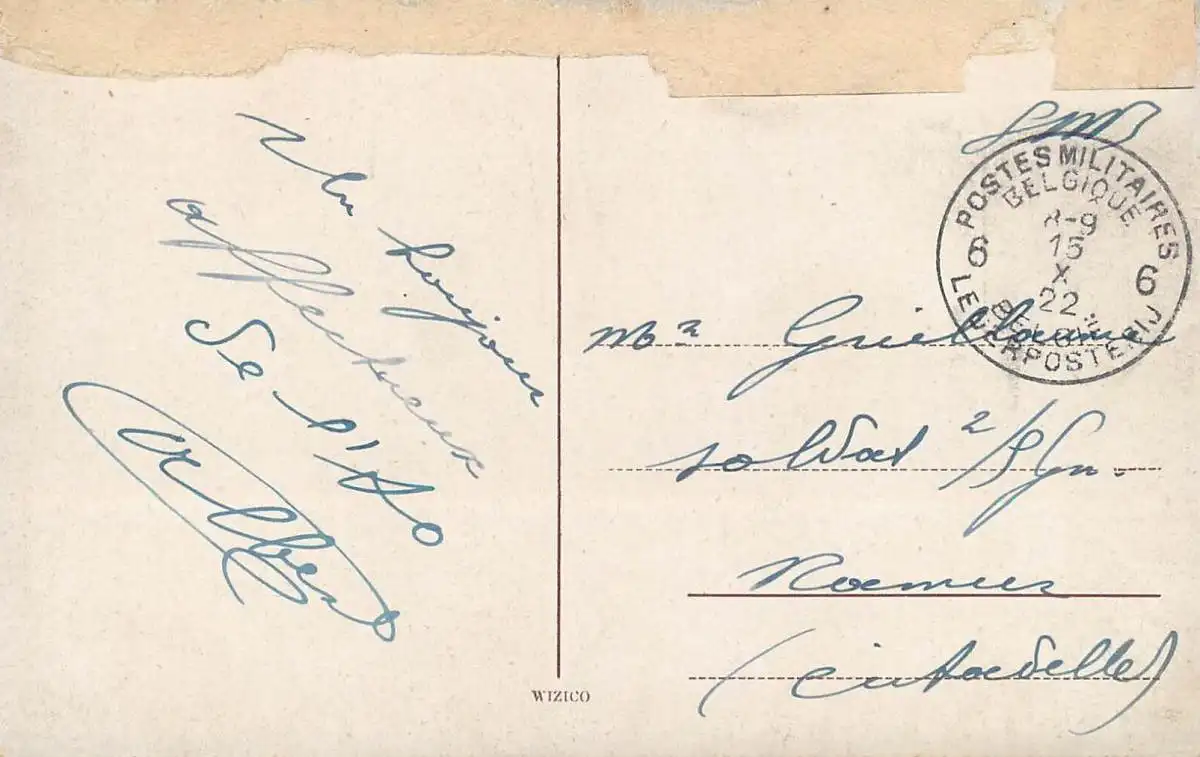 Un bonjour
affectueux
De l'Ao
Albert
SMB
POSTES MILITAIRES
BELGIQUE
8-9
15
X
22
6 6
LEGERPOSTERIJ
Mr Guillaume
soldat 2/
Namur
(citadelle)
WIZICO